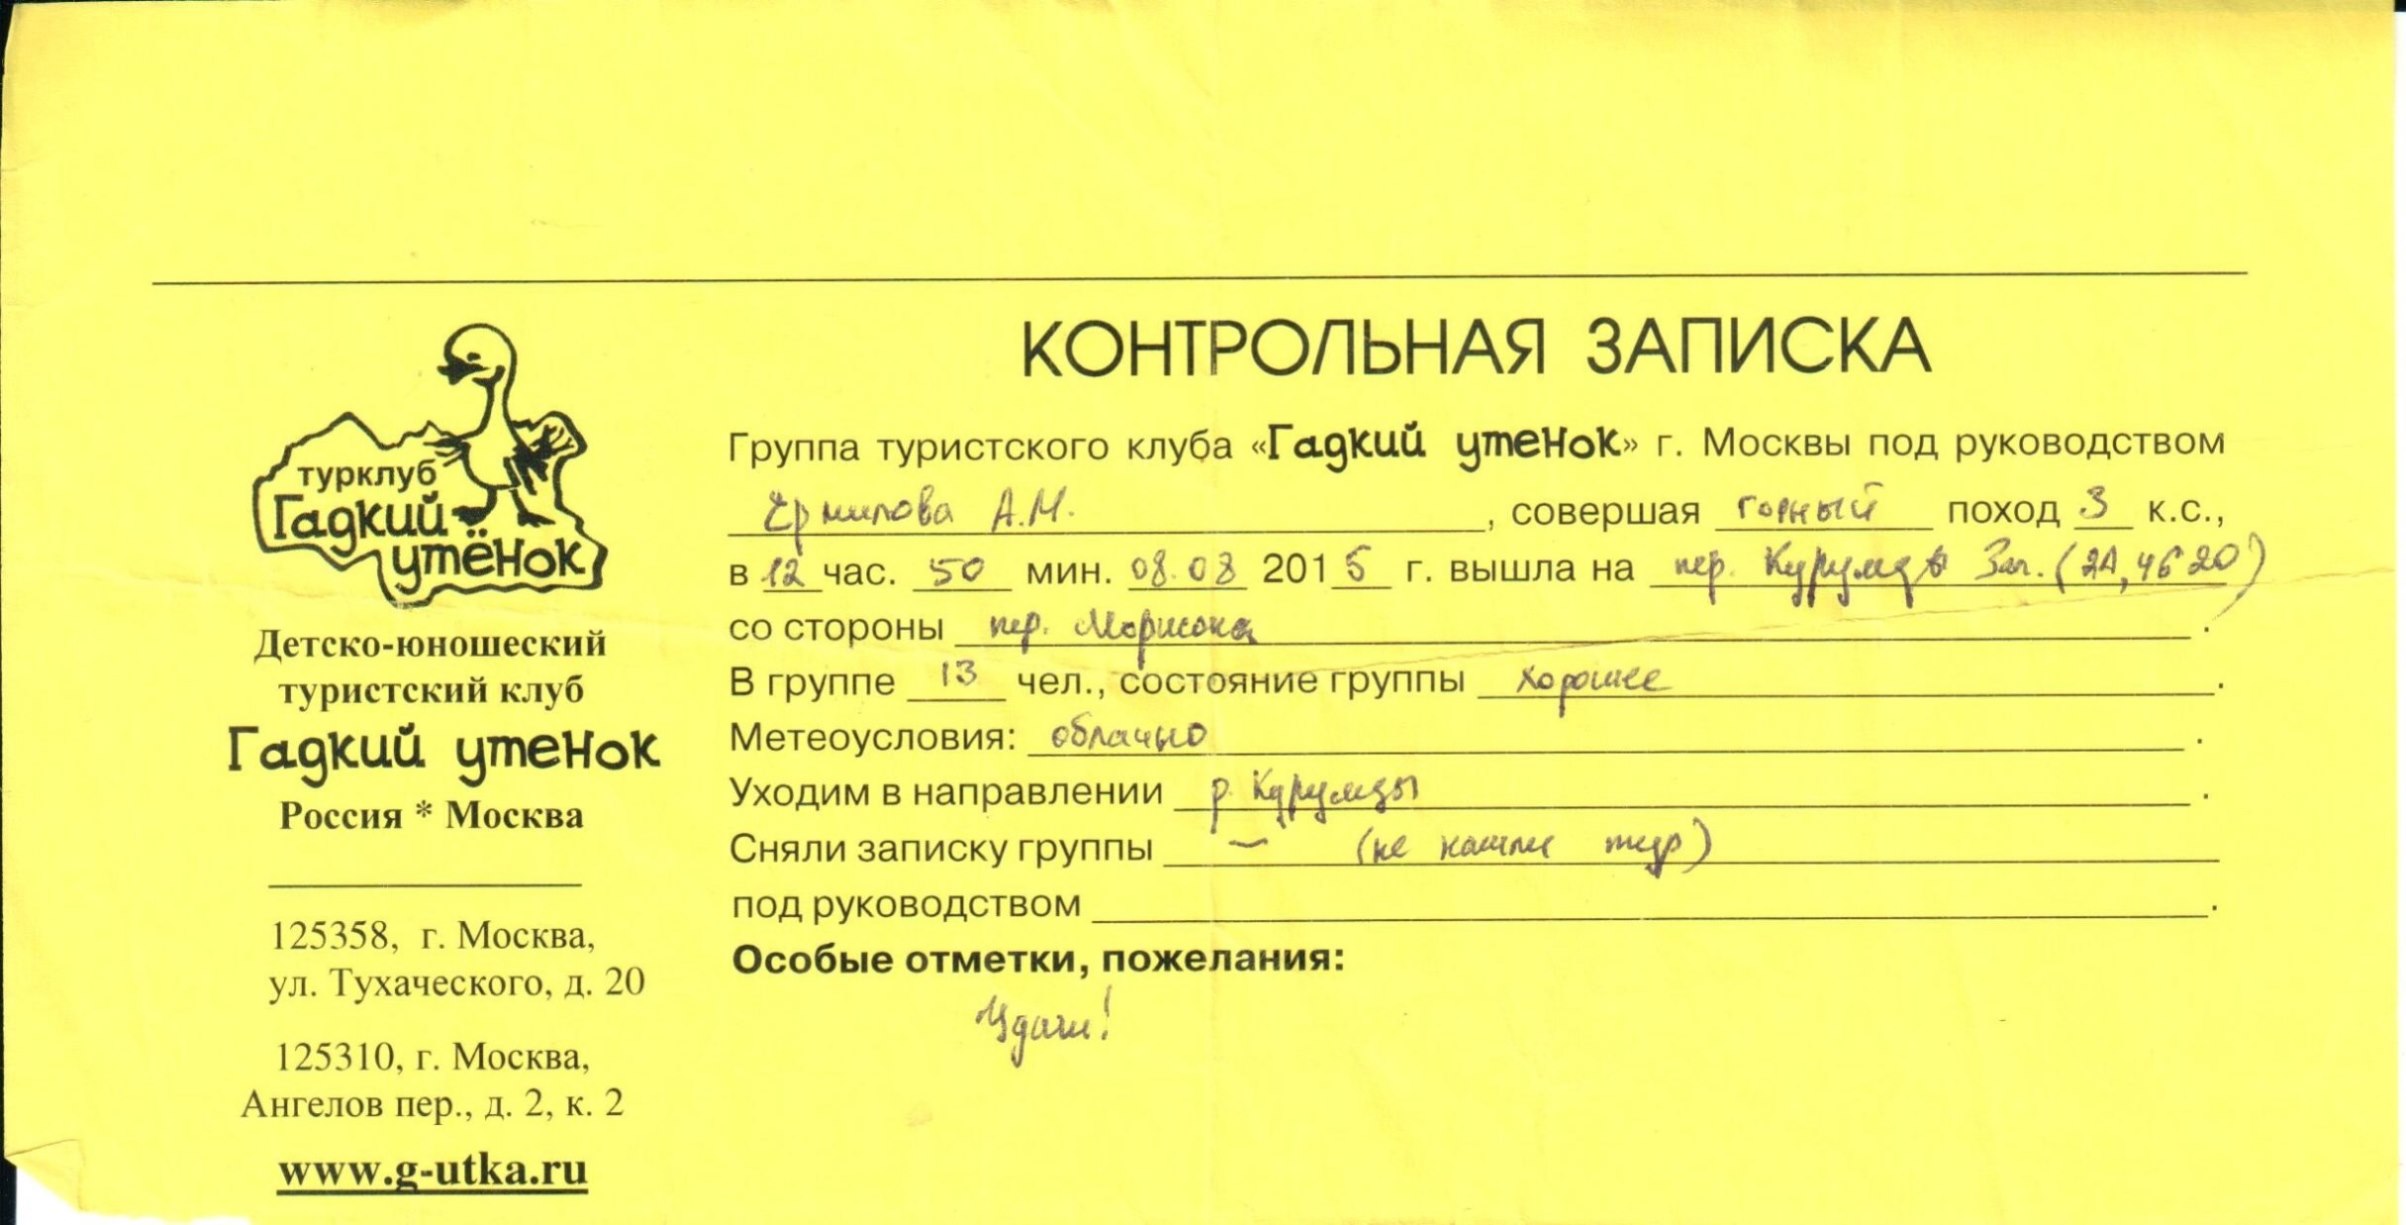 КОНТРОЛЬНАЯ ЗАПИСКА
турклуб
Гадкий
утёнок
Детско-юношеский
туристский клуб
Гадкий утенок
Россия * Москва
125358, г. Москва,
ул. Тухаческого, д. 20
125310, г. Москва,
Ангелов пер., д. 2, к. 2
www.g-utka.ru
Группа туристского клуба «Гадкий утенок» г. Москвы под руководством
Ермилова А.М., совершая горный поход 3 к.с.,
в 12 час. 50 мин. 08.08 2015 г. вышла на пер. Курумды Зап. (2А, 4620)
со стороны пер. Морисона.
В группе 13 чел., состояние группы хорошее.
Метеоусловия: облачно.
Уходим в направлении р. Курумды.
Сняли записку группы — (не нашли тур)
под руководством.
Особые отметки, пожелания:
Удачи!